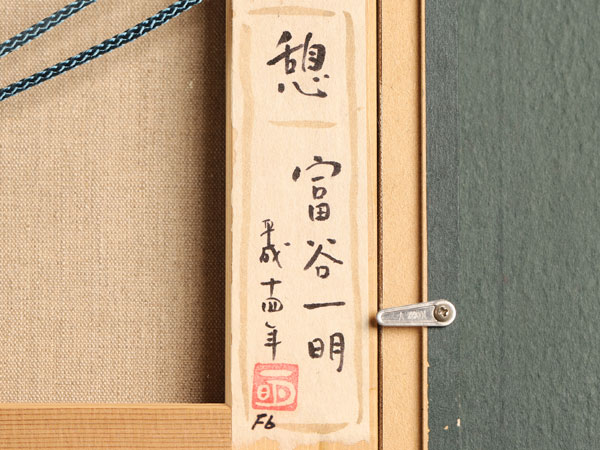 憩
富谷一明
平成十四年
一明
F6